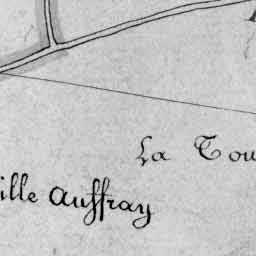 La Tou
ille Auffray